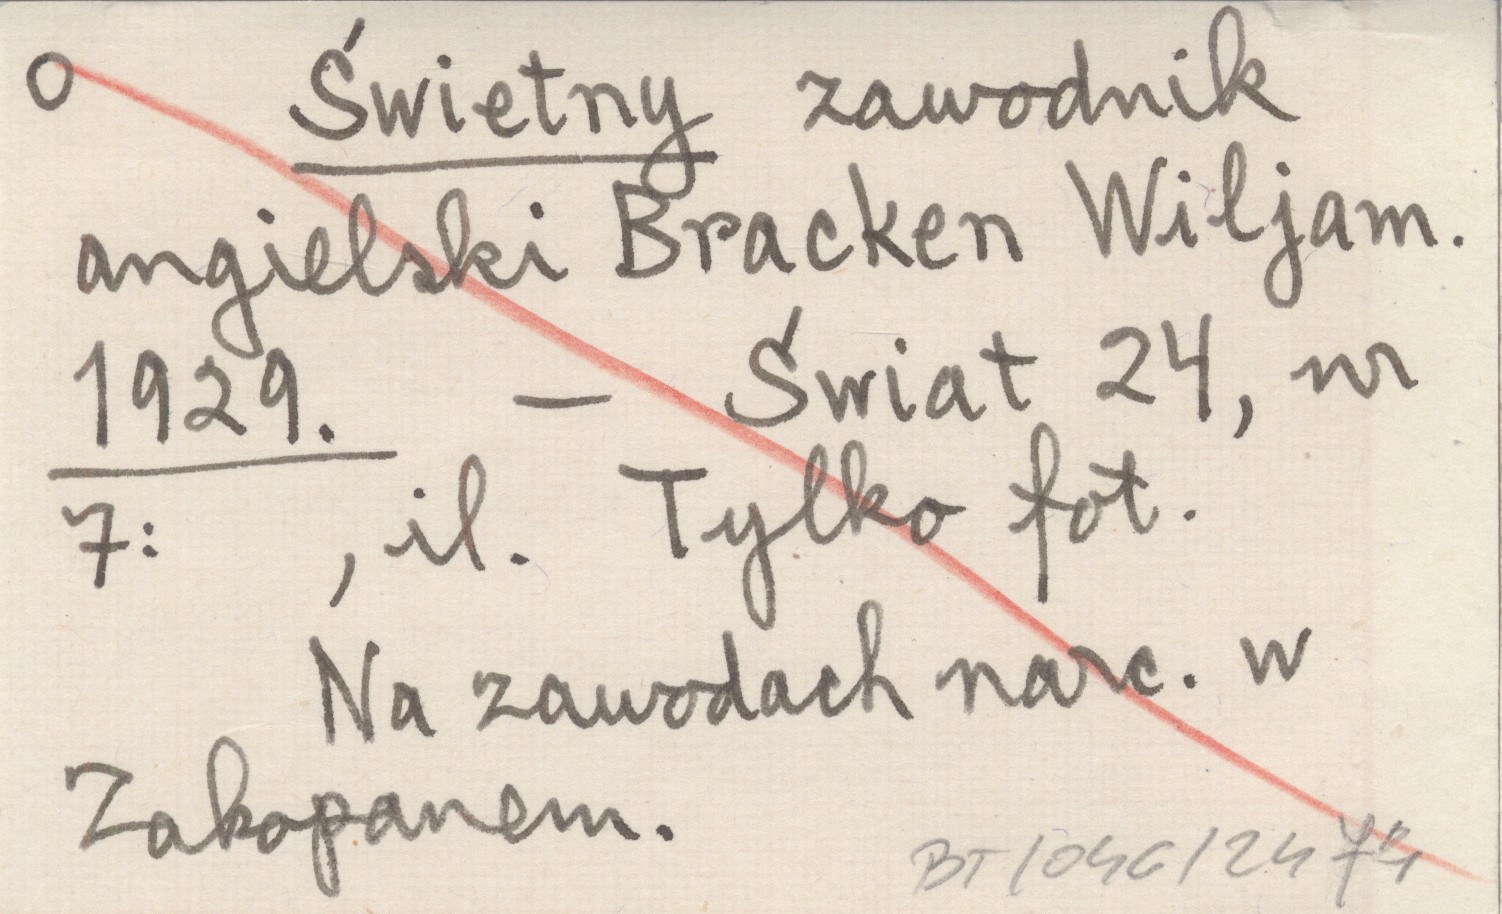 O Świetny zawodnik
angielski Bracken Wiljam.
1929. — Świat 24, nr
7: , il. Tylko fot.
Na zawodach narc. w
Zakopanem.
BT/046/24